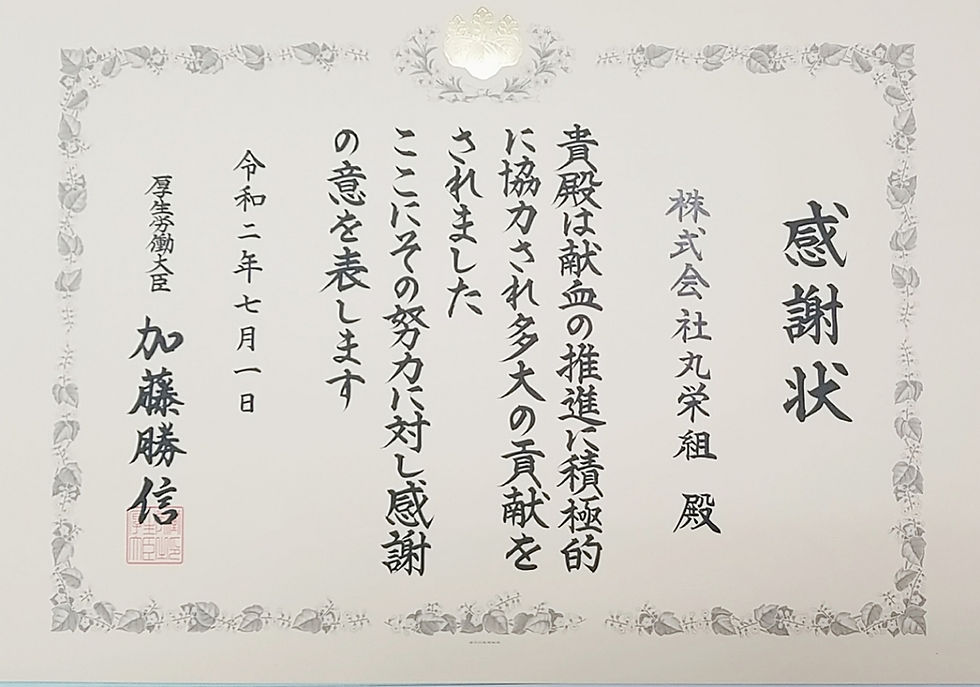 感謝状
株式会社丸栄組 殿
貴殿は献血の推進に積極的
に協力され多大の貢献を
されました
ここにその努力に対し感謝
の意を表します
令和二年七月一日
厚生労働大臣 加藤勝信